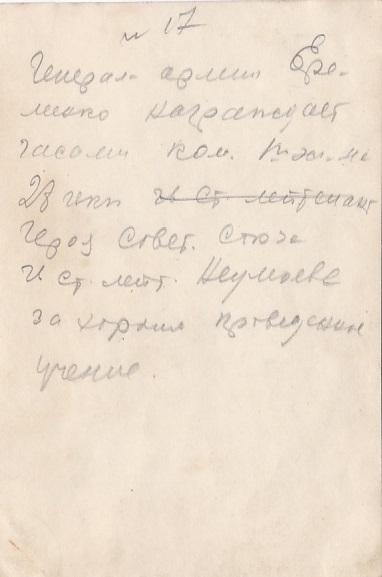 № 17
Генерал армии Ере-
менко награждает
часами ком.
23 гкп ги ст. лейтенант
Героя Совет. Союза
ги ст. лейт. Неумоева
за хорошо проведенное
учение.